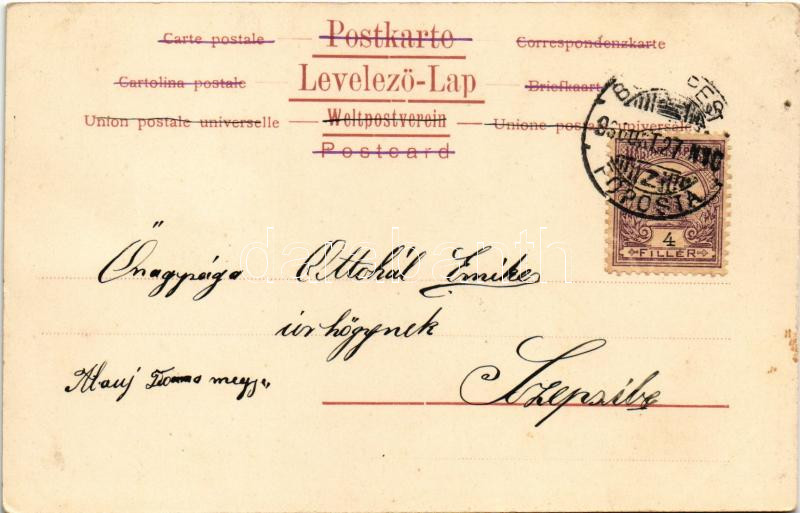 Carte postale — Postkarte — Correspondenzkarte
Cartolina postale — Levelező-Lap — Briefkaart
Union postale universelle — Weltpostverein — Unione postale universale
Postcard
BUDAPEST
FŐPOSTA
4
FILLÉR
Őnagysága Ottohál Emike
úrhölgynek
Abauj Torna megye
Szepsibe